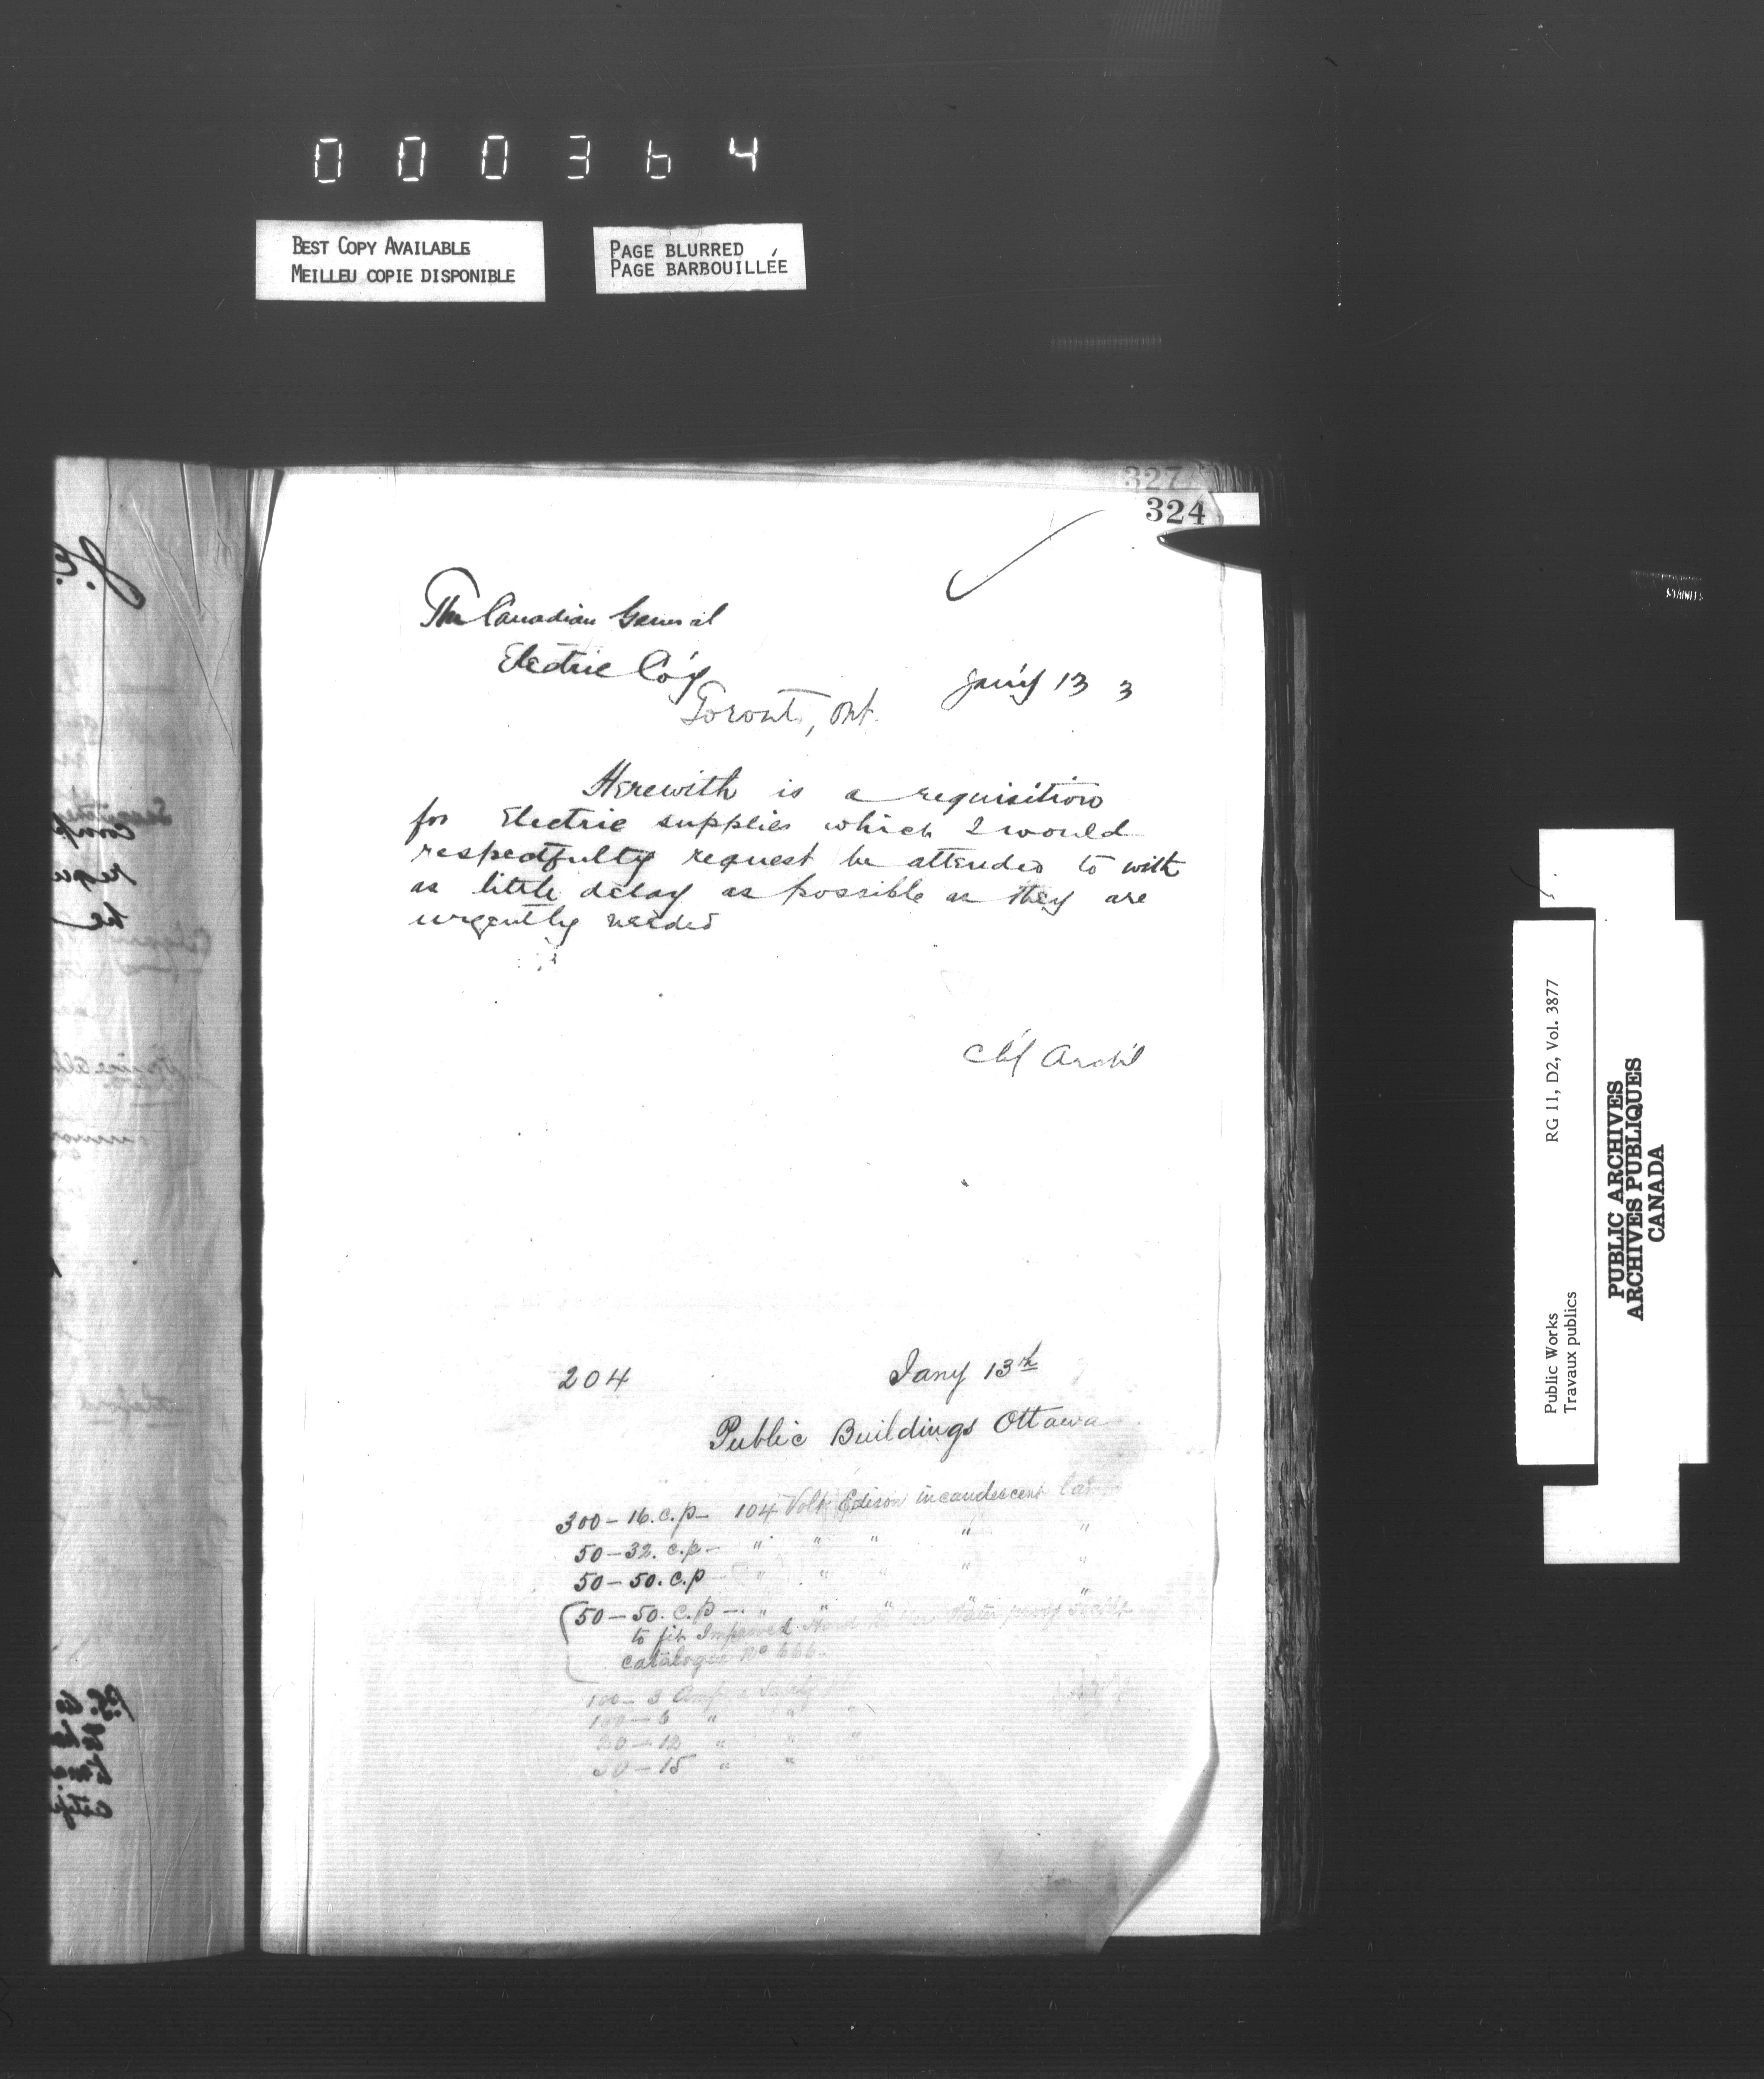 000364
BEST COPY AVAILABLE
MEILLEU COPIE DISPONIBLE
PAGE BLURRED
PAGE BARBOUILLÉE
327
324
The Canadian General
Electric Co'y
Jan'y 13 3
Toronto, Ont.
Herewith is a requisition
for Electric supplies which I would
respectfully request be attended to with
as little delay as possible as they are
urgently needed
Chf Archt
204 Jany 13th
Public Buildings Ottawa
300 - 16. c.p - 104 Volt Edison incandescent Lamps
50 - 32. c.p - " " " " "
50 - 50. c.p - " " " " "
50 - 50. c.p - " " " " "
to fit Improved Hard Rubber Water proof Socket
catalogue No 666 -
100 - 3 Ampere
100 - 6 " " "
20 - 12 " " "
30 - 15 " " "
Public Works
Travaux publics
RG 11, D2, Vol. 3877
PUBLIC ARCHIVES
ARCHIVES PUBLIQUES
CANADA